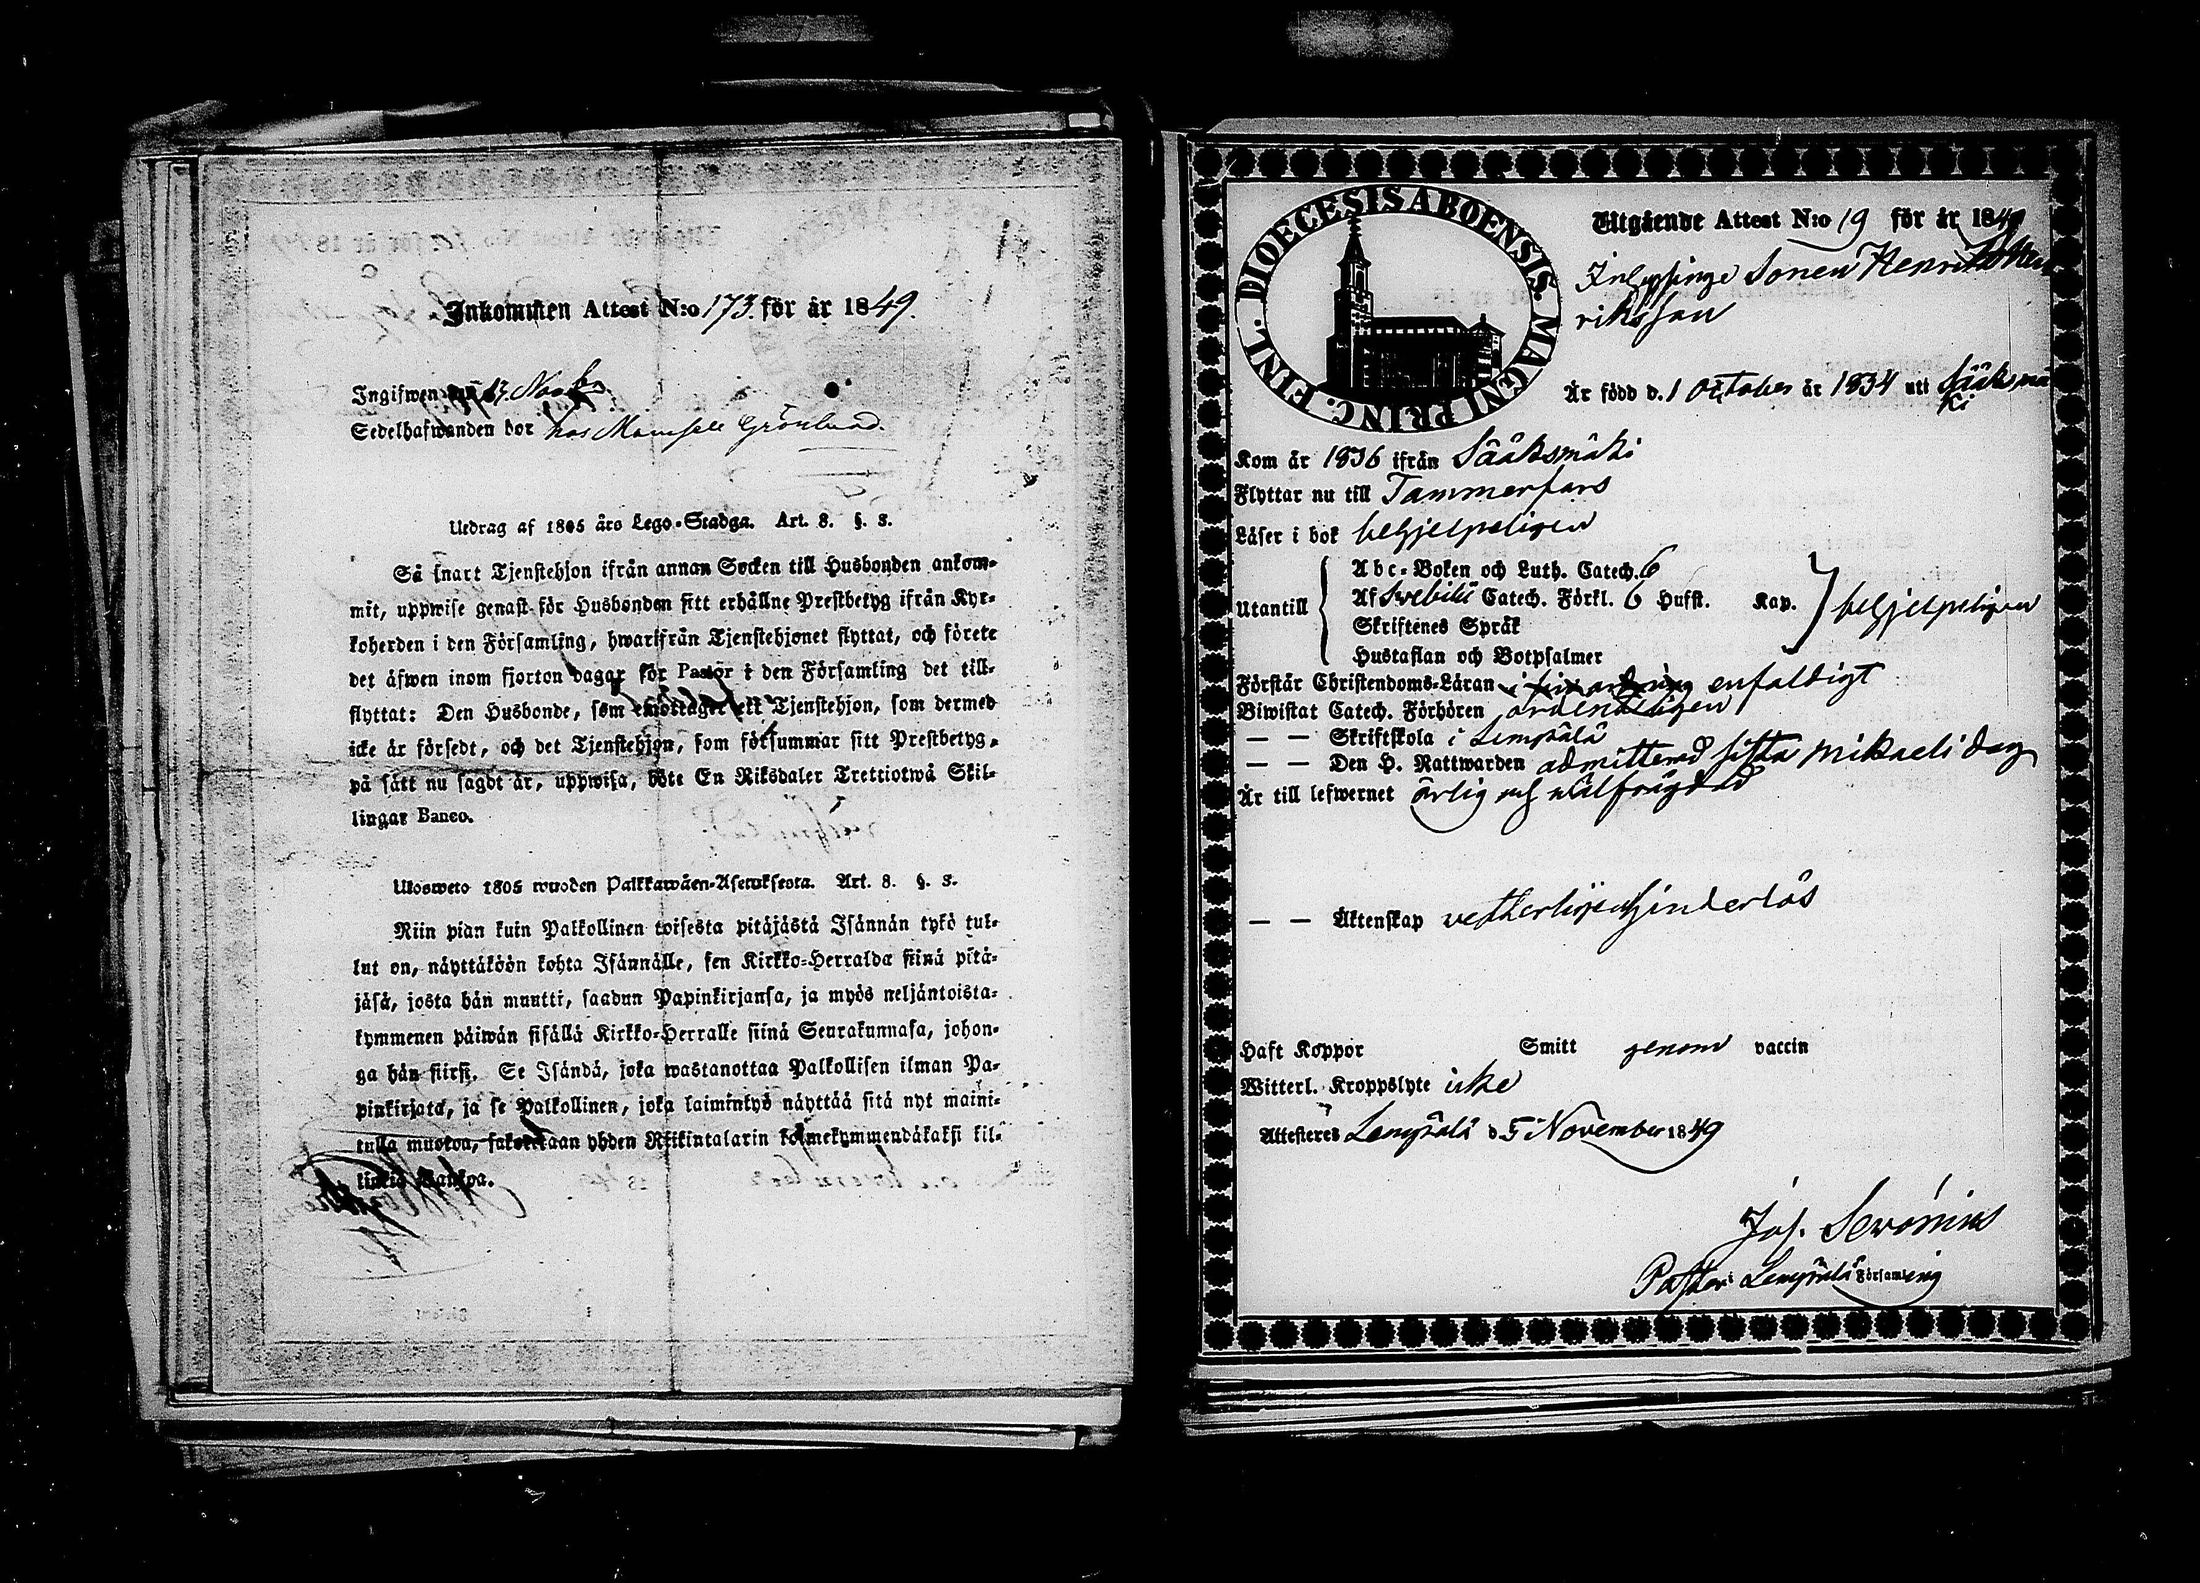 Inkommen Attest N:o 173 för år 1849.
Ingifwen den 13 Novbr
Sedelhafwanden bor hos Mamsell Grönlund.
Utdrag af 1805 års Lego-Stadga. Art. 8. §. 3.
Så snart Tjenstehjon ifrån annan Socken till Husbonden ankom-
mit, uppwise genast för Husbonden sitt erhållne Prestbetyg ifrån Kyr-
koherden i den Församling, hwarifrån Tjenstehjonet flyttat, och förete
det äfwen inom fjorton dagar för Pastor i den Församling det till-
flyttat: Den Husbonde, som emottager ett Tjenstehjon, som dermed
icke är försedt, och det Tjenstehjon, som försummar sitt Prestbetyg,
på sätt nu sagdt är, uppwisa, böte En Riksdaler Trettiotwå Skil-
lingar Banco.
Ulosweto 1805 wuoden Palkkawäen-Asetuksesta. Art. 8. §. 3.
Niin pian kuin Palkollinen toisesta pitäjästä Isännän tykö tul-
lut on, näyttäköön kohta Isännälle, sen Kirkko-Herralda siinä pitä-
jäsä, josta hän muutti, saadun Papinkirjansa, ja myös neljäntoista-
kymmenen päiwän sisällä Kirkko-Herralle siinä Seurakunnasa, johon-
ga hän siirsi. Se Isändä, joka wastanottaa Palkollisen ilman Pa-
pinkirjata, ja se Palkollinen, joka laiminlyö näyttää sitä nyt maini-
tulla muotoa, sakotetaan yhden Riikintalarin kolmekymmendäkaksi kil-
lingiä Bankoa.
DIOECESIS ABOENSIS. MAGNI PRINC. FINL.
Utgående Attest N:o 19 för år 1849
Inhysinge Sonen Henrik Hen
riksson
Är född d. 1 October år 1834 uti Sääksmä
ki
Kom år 1836 ifrån Sääksmäki
Flyttar nu till Tammerfors
Läser i bok behjelpeligen
Utantill
Abc-Boken och Luth. Catech. 6
Af Svebilii Catech. Förkl. 6 Hufst. Kap. behjelpeligen
Skriftenes Språk
Hustaflan och Botpsalmer
Förstår Christendoms-Läran enfaldigt
Biwistat Catech. Förhören ordenteligen
— — Skriftskola i Lempälä
— — Den H. Nattwarden admitterad sista Mikaeli dag
Är till lefwernet ärlig och wälfrägdad
— — Äktenskap vetterligen hinderlös
Haft Koppor Smitt genom vaccin
Witterl. Kroppslyte icke
Attesteres Lempälä d. 5 November 1849
Jos. Servónius
Pastor i Lempälä Församling